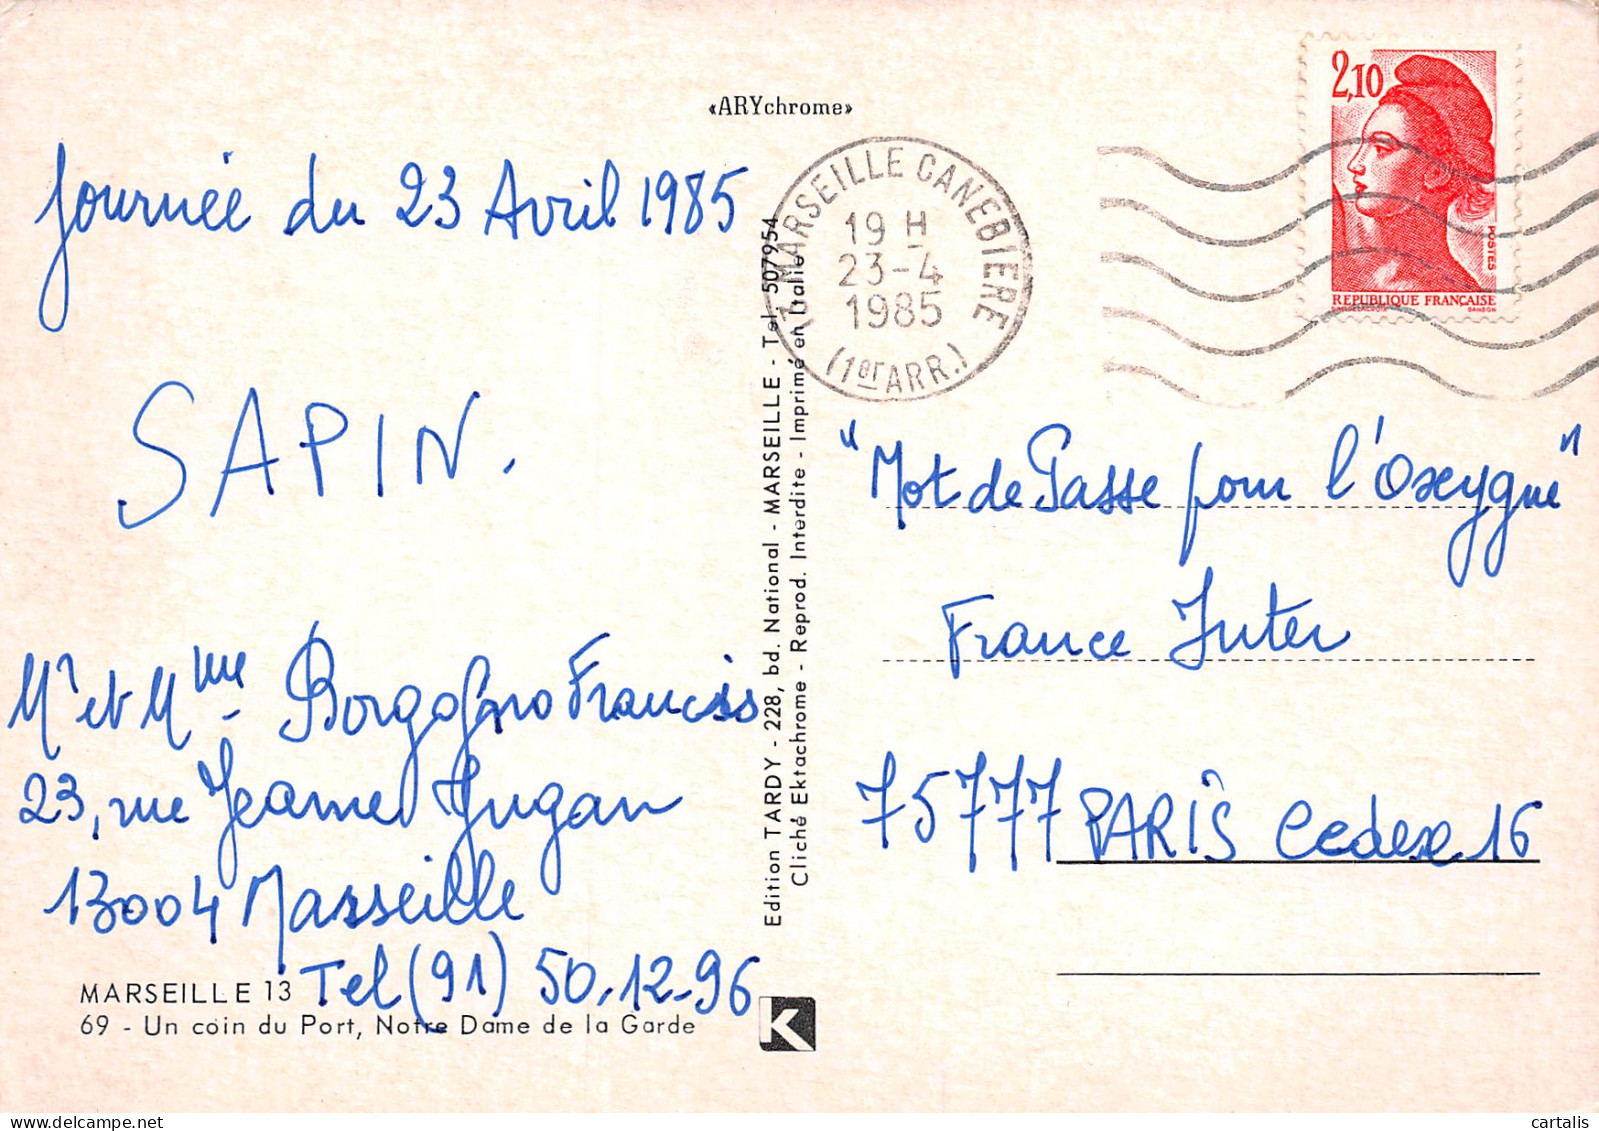 «ARYchrome»
Journée du 23 Avril 1985
SAPIN.
Mr et Mme Borgogno Francis
23, rue Jeanne Jugan
13004 Marseille
Tel (91) 50.12.96
MARSEILLE 13
69 - Un coin du Port, Notre Dame de la Garde
Edition TARDY - 228, bd. National - MARSEILLE - Tel. 507954
Cliché Ektachrome - Reprod. Interdite - Imprimé en Italie
K
MARSEILLE CANEBIERE
19 H
23-4
1985
(1er ARR.)
2,10
POSTES
REPUBLIQUE FRANÇAISE
GANDON
"Mot de Passe pour l'Oxeygne"
France Inter
75777 PARIS Cedex 16
delcampe.net
cartalis